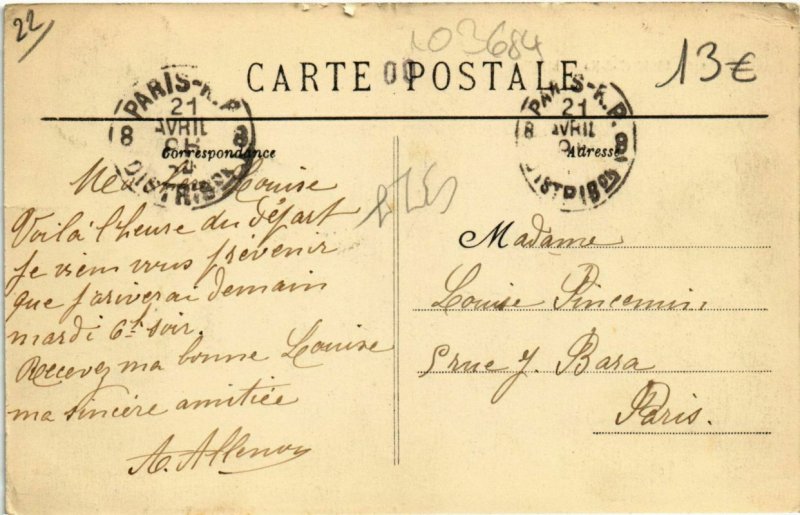 22
103684
13€
CARTE POSTALE
00
PARIS-R.P.
21
AVRIL
8 8
DISTRIBON
PARIS-R.P.
21
AVRIL
8 8
DISTRIBON
Correspondance
Adresse
Ma Louise
Voilà l'heure du départ
je viens vous prévenir
que j'ariverai demain
mardi 6h soir.
Recevez ma bonne Louise
ma sincère amitiée
A. Allenou
Madame
Louise Pincemin
rue J. Bara
Paris.